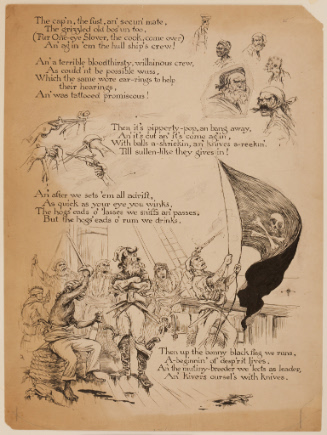 The cap'n, the fust, an' secun' mate,
The grizzled old bos'un too,
(Fur One-eye Slover, the cook, come over)
An' og'in 'em the hull ship's crew!
An' a terrible bloodthirsty, villainous crew,
As could of be possible wuss,
Which the same wore ear-rings to help
their hearing,
An' was tattooed promiscous!
Then it's pippoerty-pop, an' bang away,
An' it's cut an' it's come ag'in,
With balls a-shriekin', an' knives a-reekin'
Till sullen-like they gives in!
An' after we sets 'em all adrift,
As quick as your eye you winks,
The hogs'eads o' 'lasses we sniffs an' passes,
But the hogs'eads o' rum we drinks.
Then up the bonny black flag we runs,
A-beginnin' of desp'rit lives,
An' the mutiny-breeder we 'lects as leader,
An' kivers ourselves with knives.